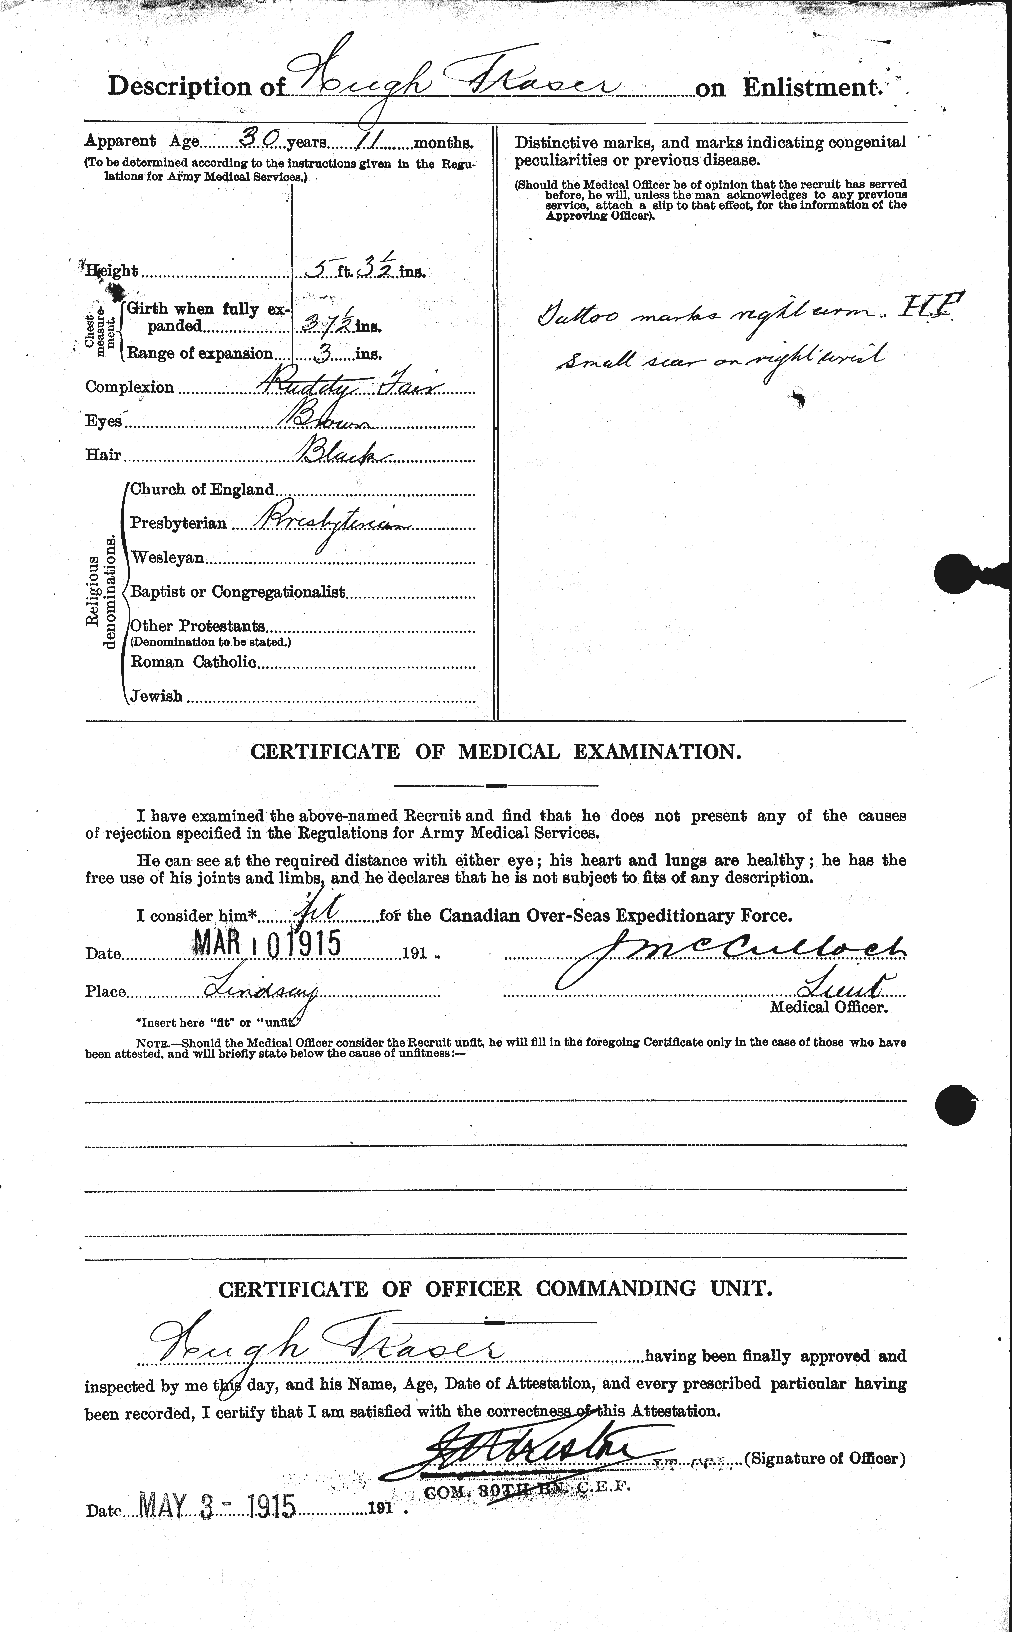 Description of Hugh Fraser on Enlistment.
Apparent Age 30 years 11 months.
(To be determined according to the instructions given in the Regu-
lations for Army Medical Services.)
Height 5 ft. 3½ ins.
Chest measure-ment.
Girth when fully ex-
panded 37½ ins.
Range of expansion 3 ins.
Complexion Ruddy Fair
Eyes Brown
Hair Black
Religious denominations.
Church of England
Presbyterian Presbyterian
Wesleyan
Baptist or Congregationalist
Other Protestants
(Denomination to be stated.)
Roman Catholic
Jewish
Distinctive marks, and marks indicating congenital
peculiarities or previous disease.
(Should the Medical Officer be of opinion that the recruit has served
before, he will, unless the man acknowledges to any previous
service, attach a slip to that effect, for the information of the
Approving Officer).
Tattoo marks right arm. H.F.
Small scar on right wrist
CERTIFICATE OF MEDICAL EXAMINATION.
I have examined the above-named Recruit and find that he does not present any of the causes
of rejection specified in the Regulations for Army Medical Services.
He can see at the required distance with either eye; his heart and lungs are healthy; he has the
free use of his joints and limbs, and he declares that he is not subject to fits of any description.
I consider him* fit for the Canadian Over-Seas Expeditionary Force.
Date MAR 10 1915 191 .
J McCulloch
Place Lindsay
Lieut
Medical Officer.
*Insert here "fit" or "unfit."
NOTE.—Should the Medical Officer consider the Recruit unfit, he will fill in the foregoing Certificate only in the case of those who have
been attested, and will briefly state below the cause of unfitness:—
CERTIFICATE OF OFFICER COMMANDING UNIT.
Hugh Fraser having been finally approved and
inspected by me this day, and his Name, Age, Date of Attestation, and every prescribed particular having
been recorded, I certify that I am satisfied with the correctness of this Attestation.
(Signature of Officer)
COM. 39TH BN. C.E.F.
Date MAY 3 - 1915 191 .